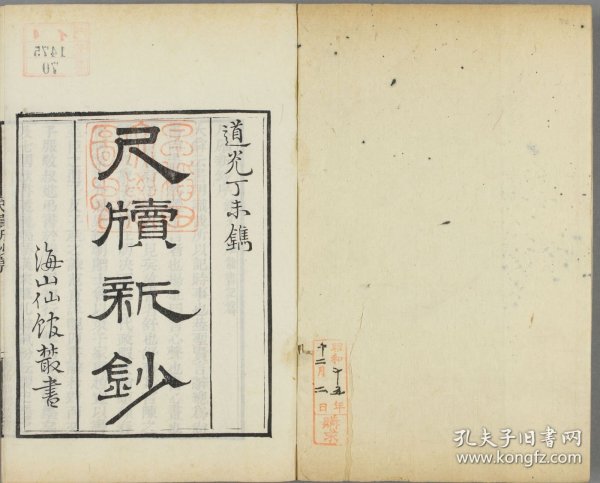 道光丁未鐫
尺牘新鈔
海山仙館叢書
1475
70
昭和十五年
十二月二日
購求
孔夫子旧书网
www.kongfz.com